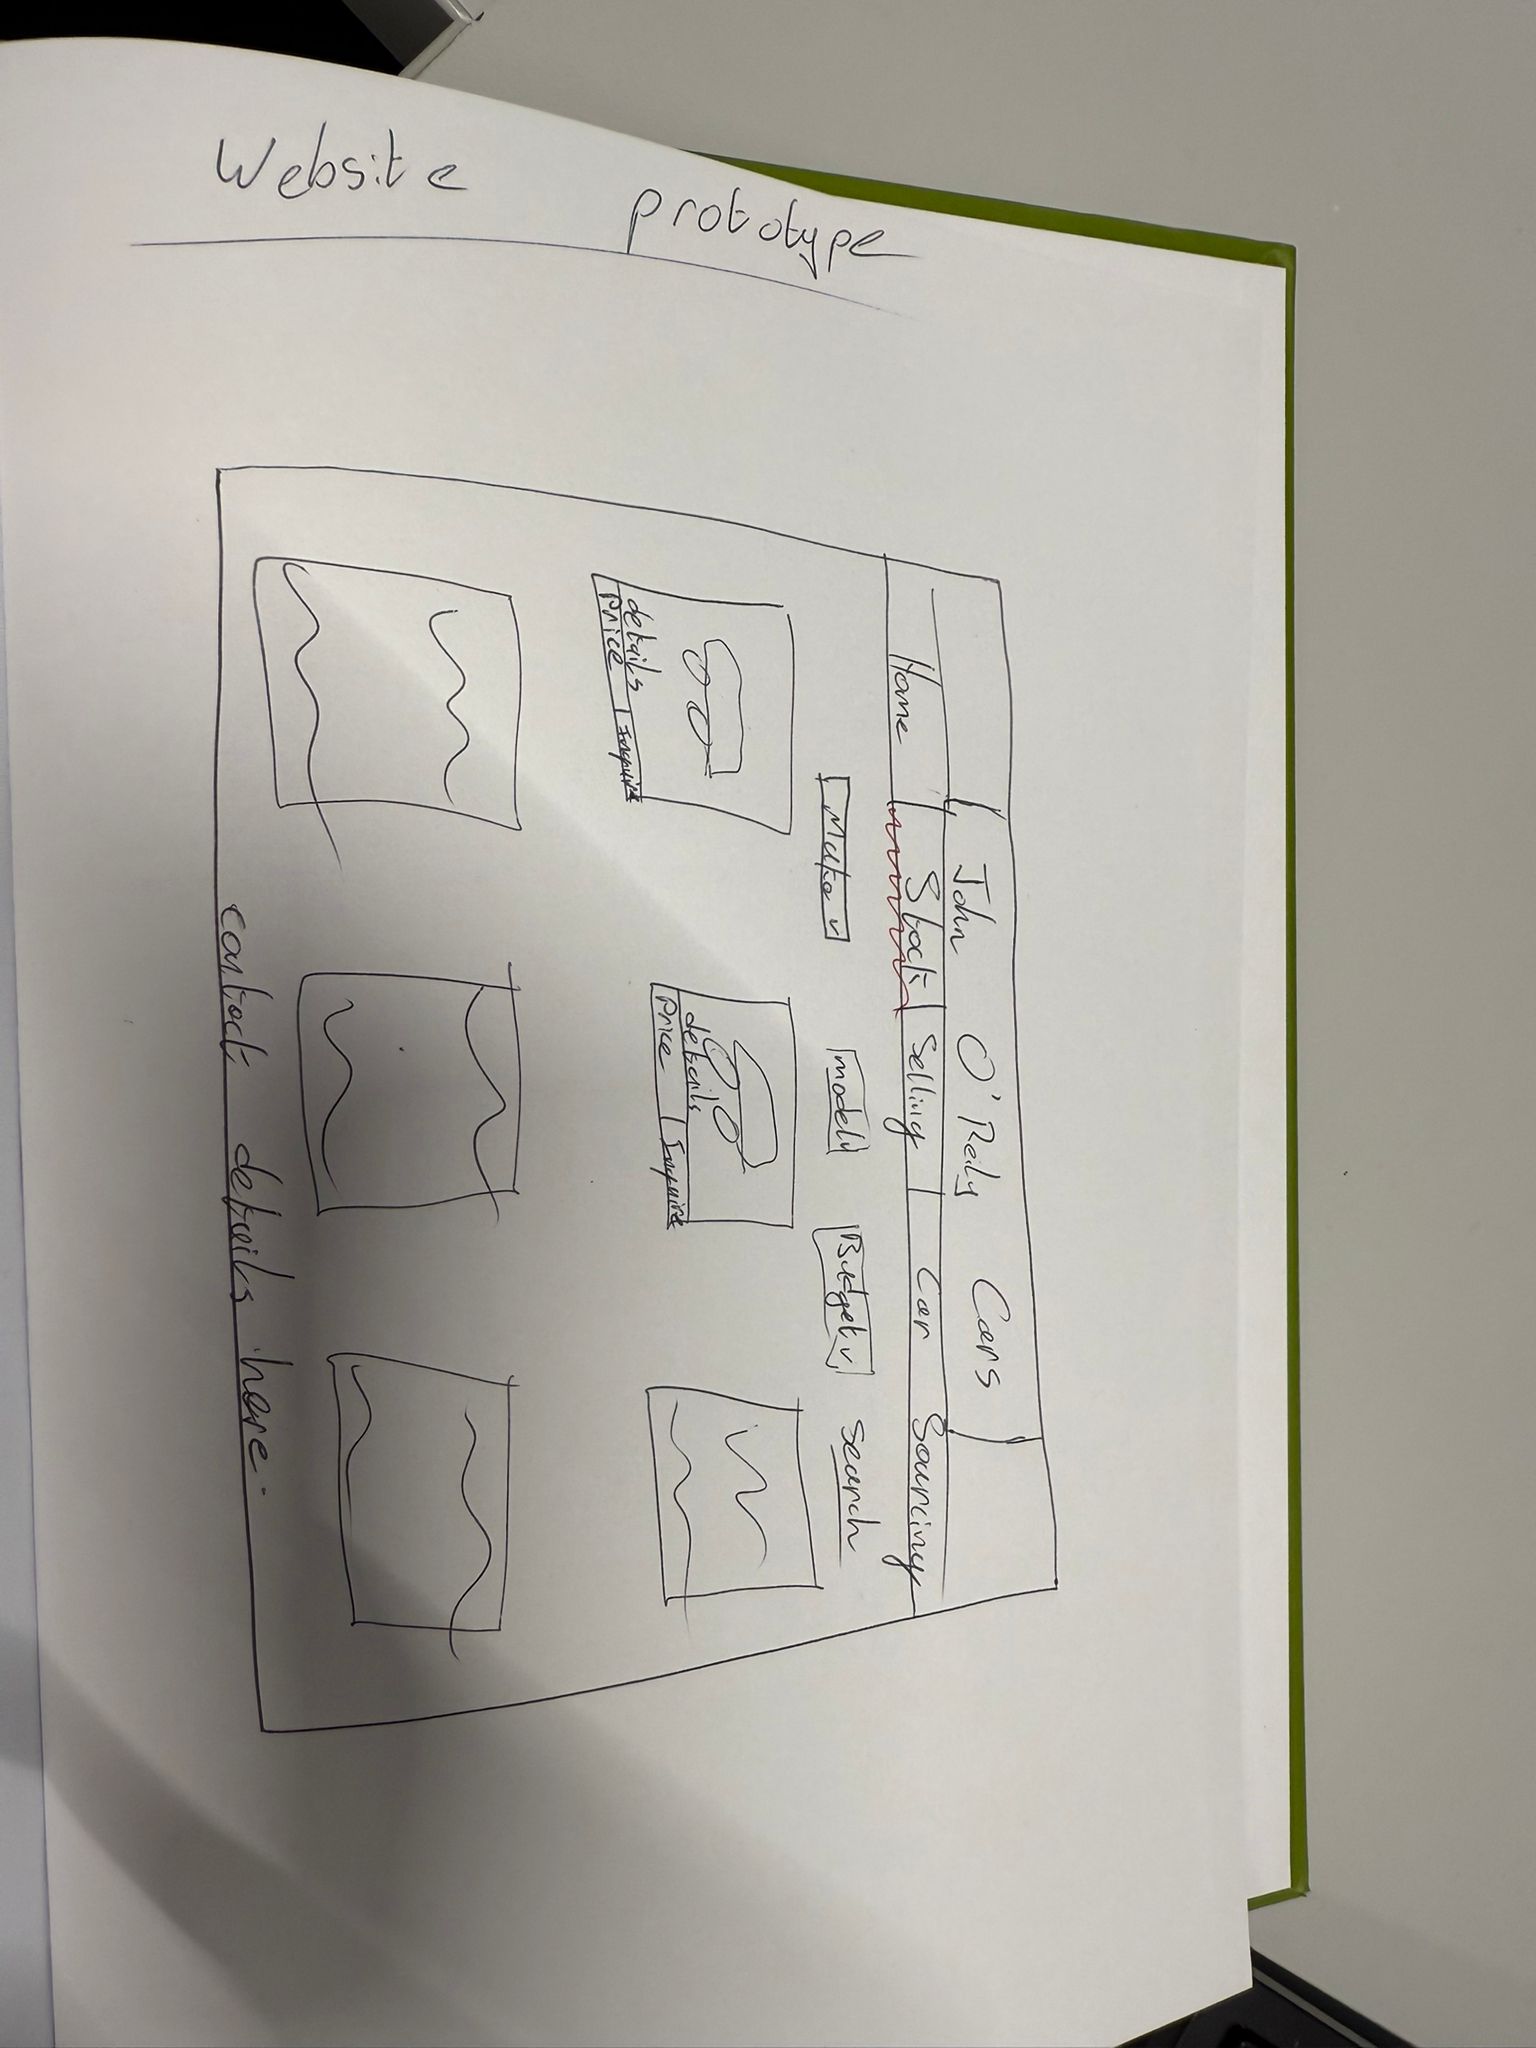 Website prototype
John O'Reily Cars
Home | Stock | Selling | Car Sourcing
Make v model v Budget v search
details
Price | Inquire
details
Price | Inquire
contact details here.